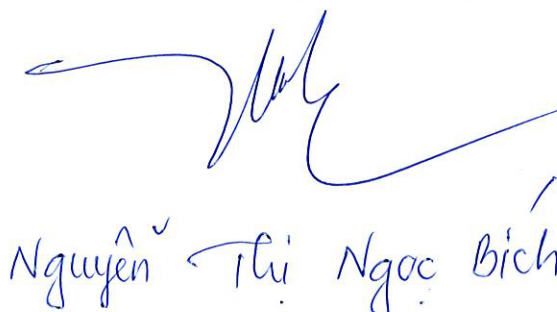 Nguyễn Thị Ngọc Bích